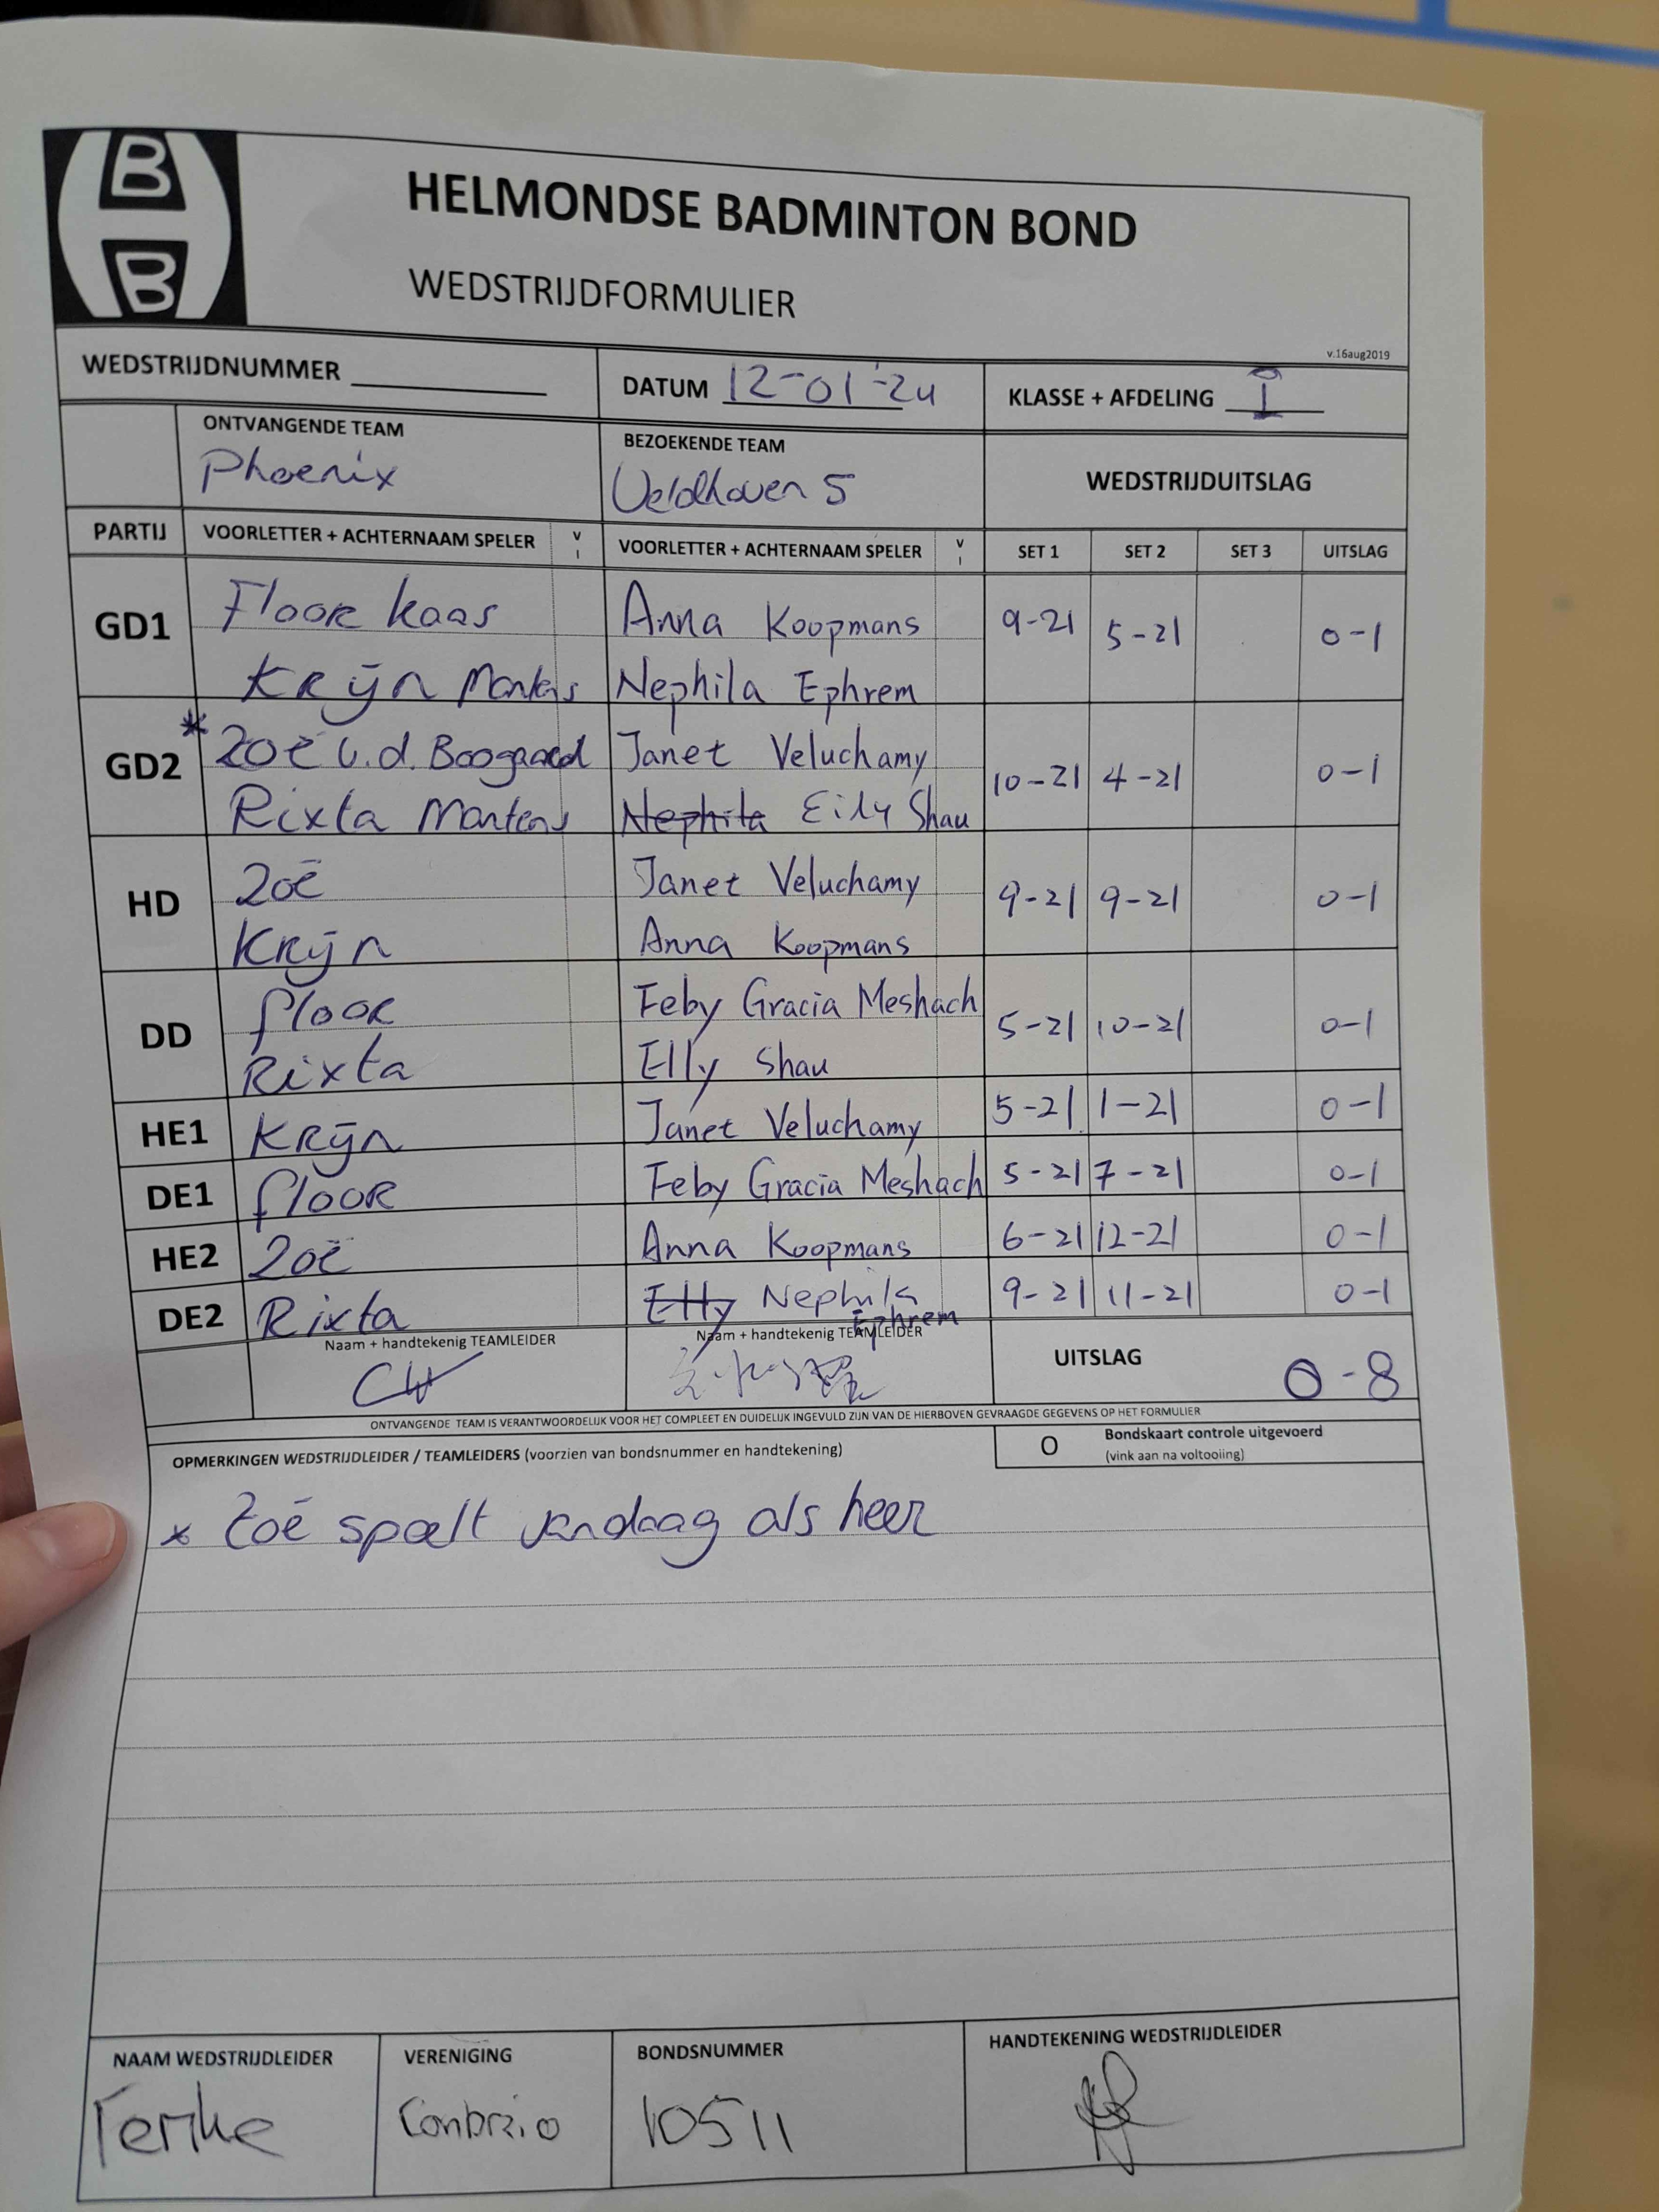 B
B
HELMONDSE BADMINTON BOND
WEDSTRIJDFORMULIER
v.16aug2019
WEDSTRIJDNUMMER
DATUM 12-01-'24
KLASSE + AFDELING I
ONTVANGENDE TEAM
Phoenix
BEZOEKENDE TEAM
Veldhoven 5
WEDSTRIJDUITSLAG
PARTIJ VOORLETTER + ACHTERNAAM SPELER V I VOORLETTER + ACHTERNAAM SPELER V I SET 1 SET 2 SET 3 UITSLAG
GD1 Floor kaas Anna Koopmans 9-21 5-21 0-1
Krijn Martens Nephila Ephrem
GD2 * Zoë v.d. Boogaard Janet Veluchamy 10-21 4-21 0-1
Rixta Martens Nephila Eily Shau
HD Zoë Janet Veluchamy 9-21 9-21 0-1
Krijn Anna Koopmans
DD floor Feby Gracia Meshach 5-21 10-21 0-1
Rixta Elly Shau
HE1 Krijn Janet Veluchamy 5-21 1-21 0-1
DE1 floor Feby Gracia Meshach 5-21 7-21 0-1
HE2 Zoë Anna Koopmans 6-21 12-21 0-1
DE2 Rixta Elly Nephila Ephrem 9-21 11-21 0-1
Naam + handtekenig TEAMLEIDER
Naam + handtekenig TEAMLEIDER
UITSLAG 0-8
ONTVANGENDE TEAM IS VERANTWOORDELIJK VOOR HET COMPLEET EN DUIDELIJK INGEVULD ZIJN VAN DE HIERBOVEN GEVRAAGDE GEGEVENS OP HET FORMULIER
OPMERKINGEN WEDSTRIJDLEIDER / TEAMLEIDERS (voorzien van bondsnummer en handtekening)
O Bondskaart controle uitgevoerd
(vink aan na voltooiing)
* Zoë speelt vandaag als heer
NAAM WEDSTRIJDLEIDER
VERENIGING
Conbrio
BONDSNUMMER
10511
HANDTEKENING WEDSTRIJDLEIDER